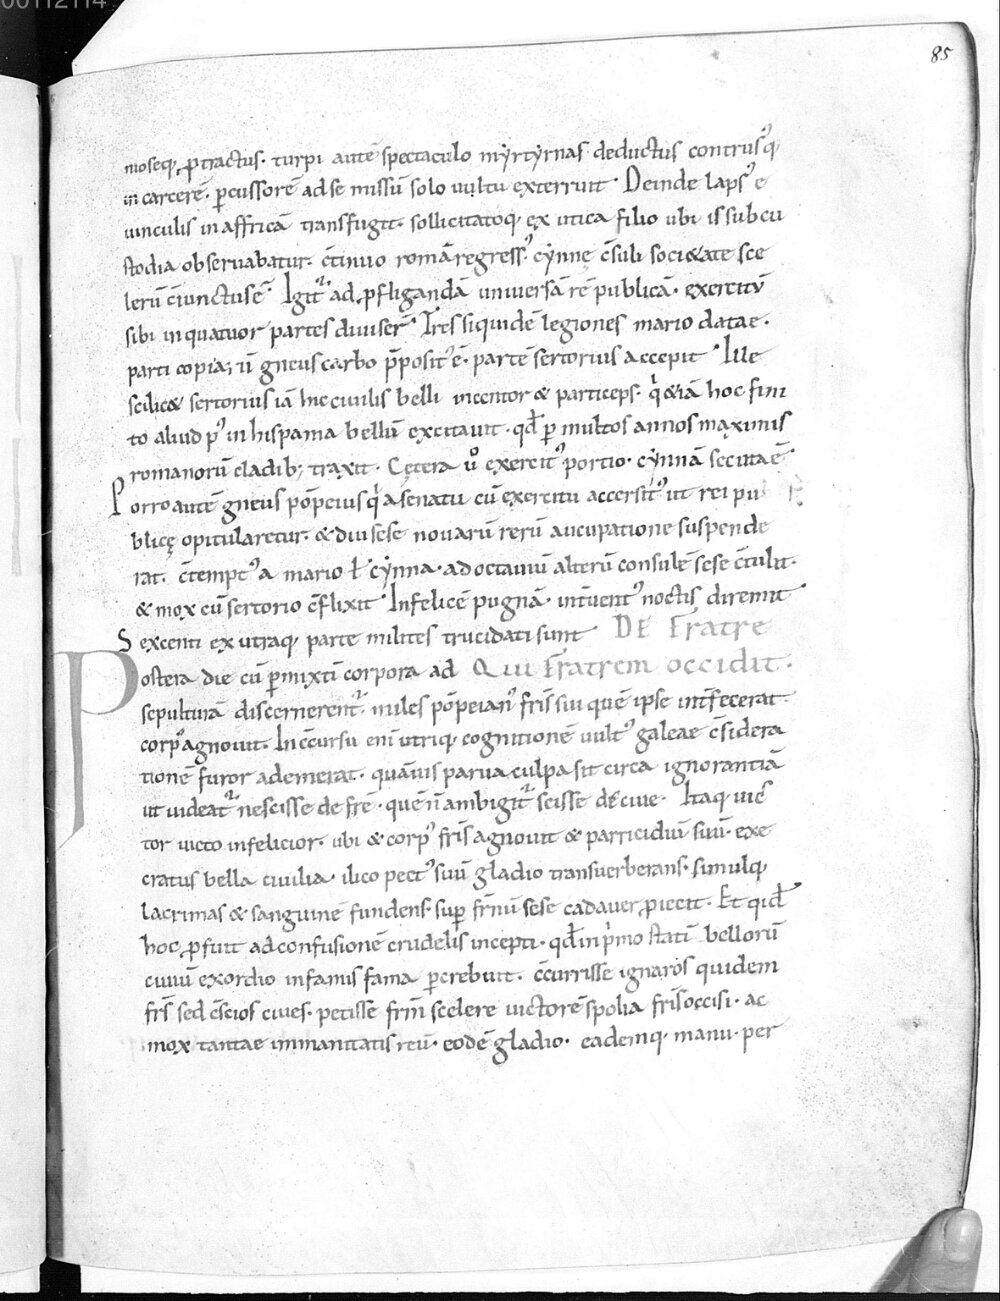 00112114
85
moseq; ꝓtractus. turpi autē spectaculo myrtyrnas deductus contrusꝰq;
in carcerē. ꝑcussorē ad se missū solo vultu exterruit. Deinde lapsꝰ e
uinculis in affricā transfugit. sollicitatoq; ex utica filio ubi is sub cu
stodia obseruabatur. c̄tinuo romā regressꝰ. cynnę c̄suli soci&ate sce
lerū c̄iunctus ē. Igit᷑ ad ꝓfligandā uniuersā rē publicā. exercitū
sibi in quatuor partes diuiser̄. Tres siquidē legiones mario datae.
parti copiaꝝ gneus carbo p̄positꝰ ē. partē sertorius accepit. Ille
scilic& sertorius iā hinc ciuilis belli incentor & particeps. qͥ &iā hoc fini
to aliud pꝰ in hispania bellū excitauit. qđ ꝑ multos annos maximis
romanorū cladibꝫ traxit. Cętera ůo exercitꝰ portio. cynnā secuta ē.
Porro autē gneus pōpeius qͥ a senatu cū exercitu accersitꝰ ut rei pu
blicę opitularetur. & diu sese nouarū rerū aucupatione suspende
rat. c̄temptꝰ a mario ł cynna. ad octauiū alterū consulē sese c̄tulit.
& mox cū sertorio c̄flixit. Infelicē pugnā. int̄uentꝰ noctis diremit.
Sexcenti ex utraq; parte milites trucidati sunt. DE Fratre
Postera die cū ꝑmixti corpora ad Qui Fratrem occidit.
sepulturā discernerent᷑. miles pōpeianꝰ fr̄is sui quē ipse int̄fecerat.
corpꝰ agnouit. In c̄cursu eni utriq; cognitionē uultꝰ galeae c̄sidera
tionē furor ademerat. quāuis parua culpa sit circa ignorantiā
ut uideat᷑ nescisse de fr̄e. quē n̄ ambigit᷑ scisse de ciue. Itaq; uic
tor uicto infelicior. ubi & corpꝰ fr̄is agnouit & parricidiū suū. exe
cratus bella ciuilia. ilico pectꝰ suū gladio transuerberans. simulq;
lacrimas & sanguinē fundens. suꝑ fr̄nū sese cadauer ꝓiecit. Et qid
hoc ꝓfuit ad confusionē crudelis incepti. qđ in pͥmo statī bellorū
ciuiū exordio infamis fama ꝑcrebuit. c̄currisse ignaros quidem
fr̄s sed c̄scios ciues. petisse fr̄m scelere uictorē spolia fr̄is occisi. ac
mox tantae immanitatis reū. eodē gladio. eademq; manu. per